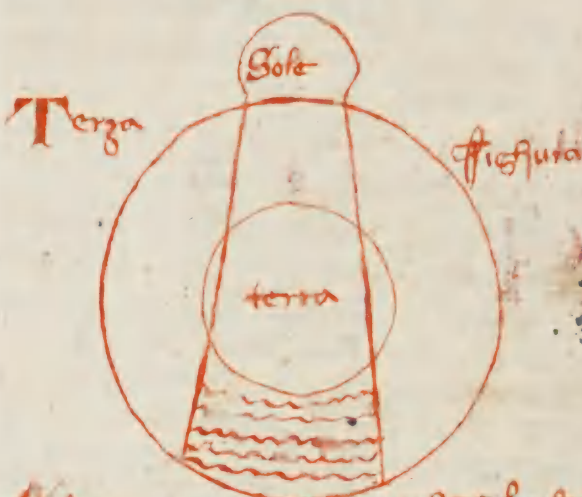 Sole
Terza
ffighura
terra